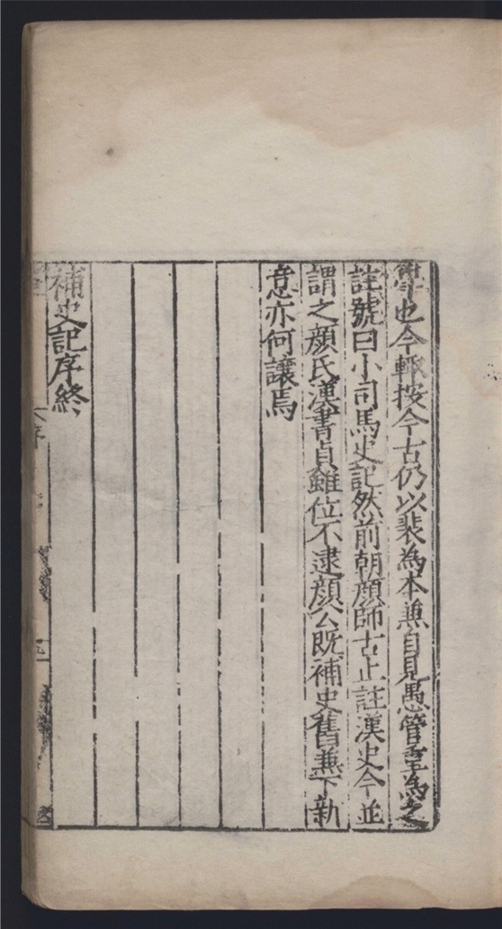 學也今輒按今古仍以裴為本兼自見愚管重為之
註號曰小司馬史記然前朝顏師古止註漢史今並
謂之顏氏漢書貞雖位不逮顏公既補史舊兼下新
意亦何讓焉
補史記序終